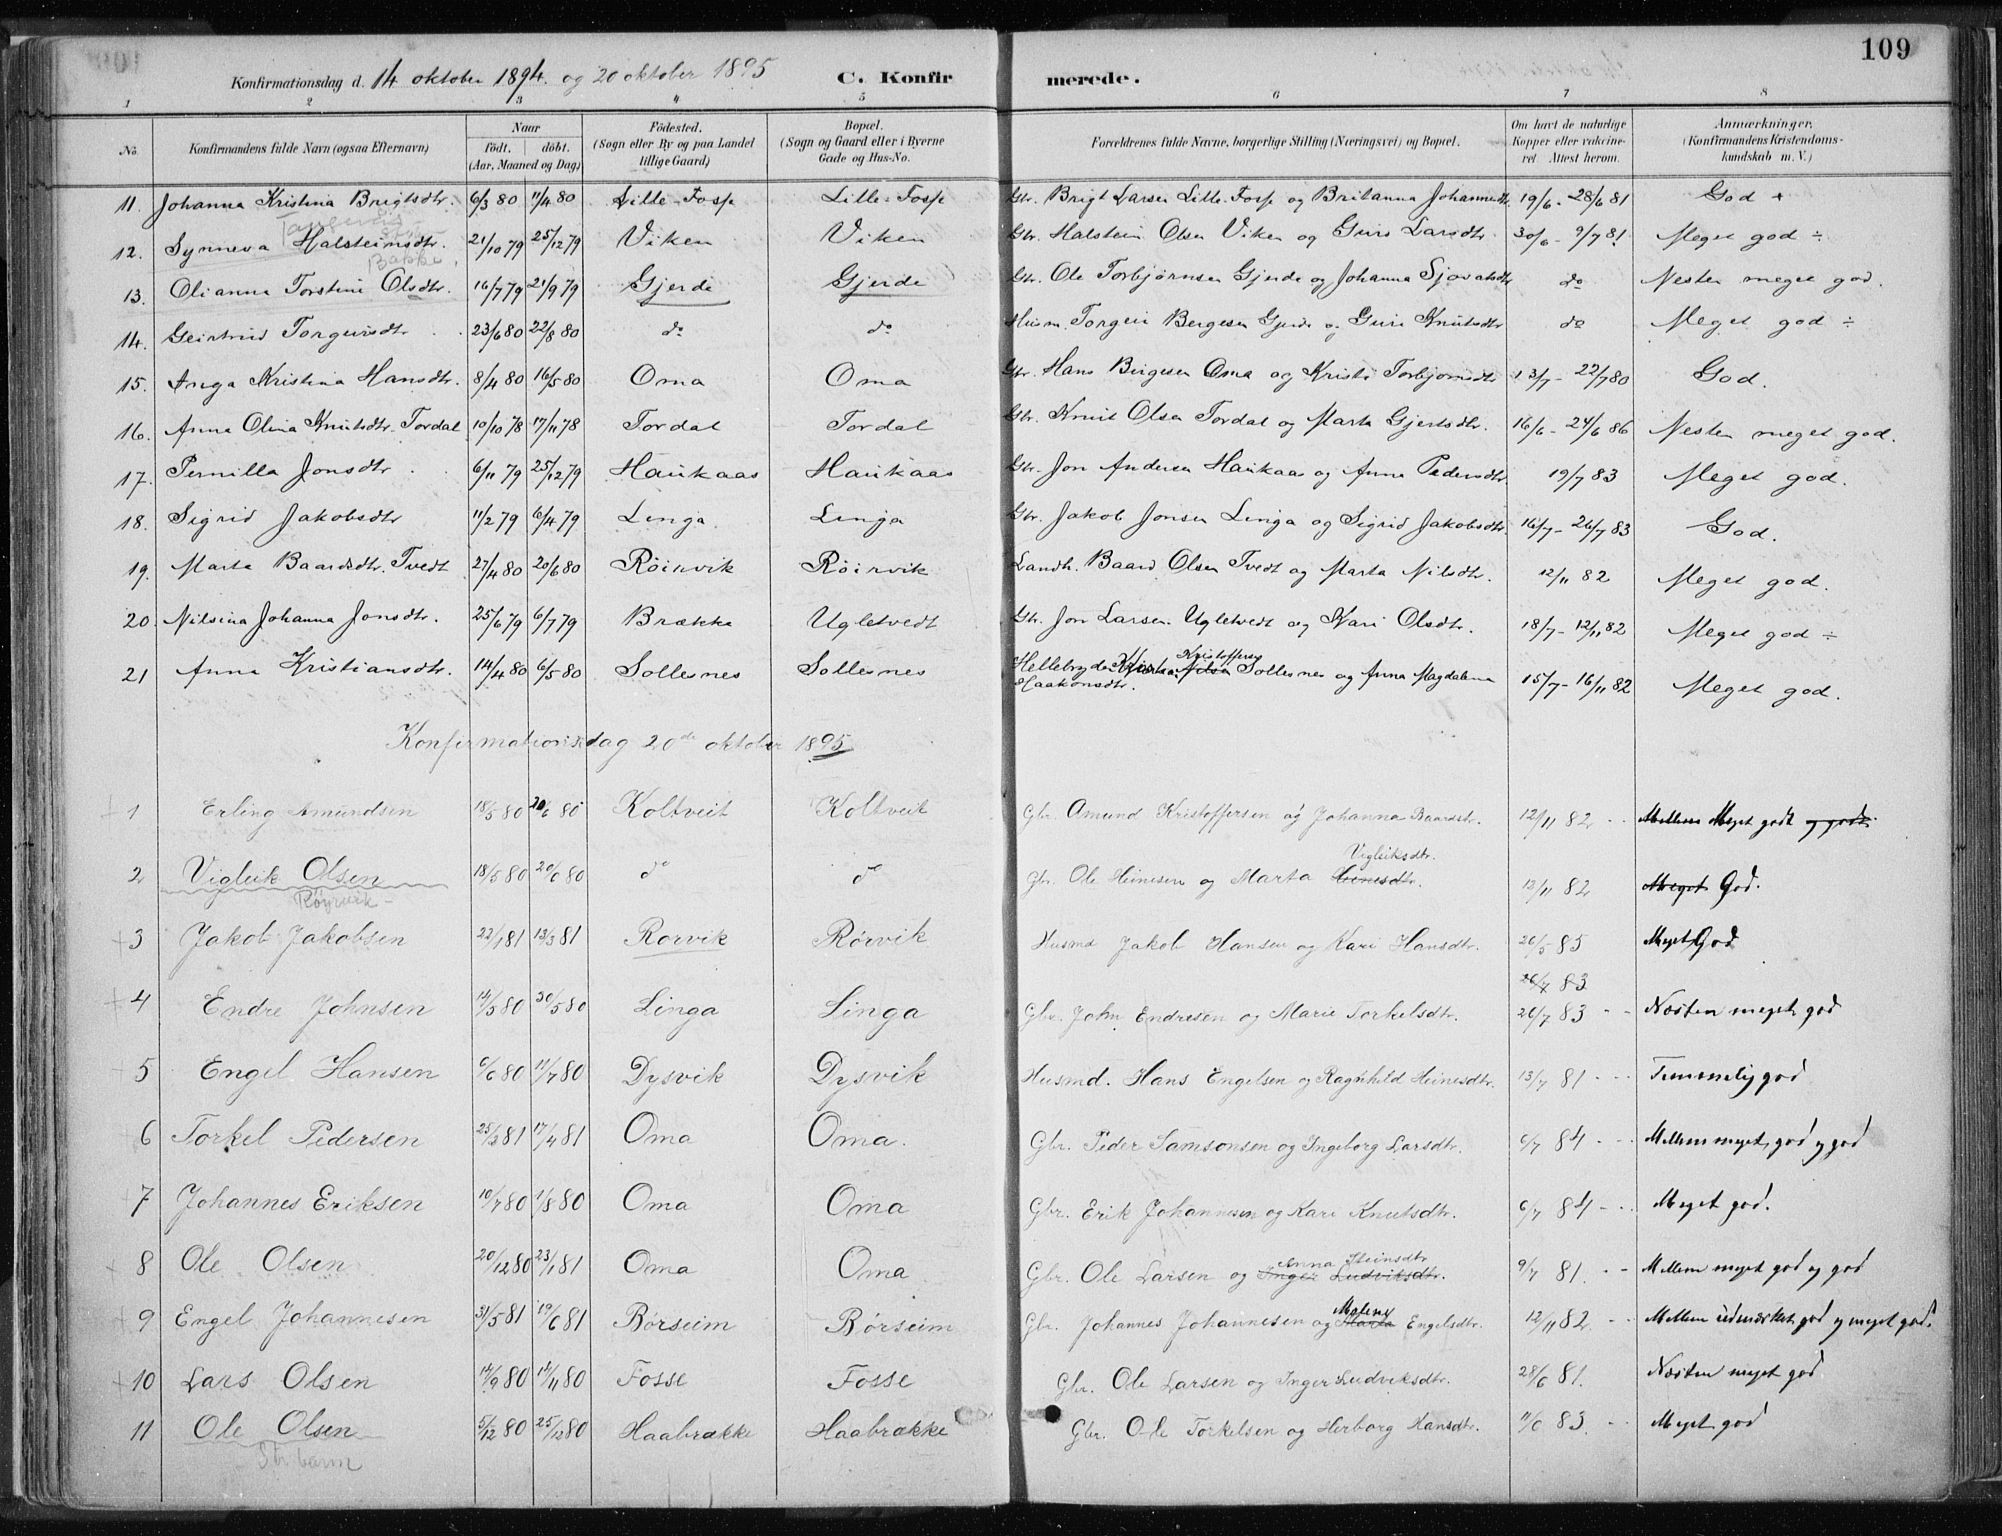 109
Konfirmationsdag d. 14 oktober 1894. og 20 oktober 1895 C. Konfir merede.
1 2 3 4 5 6 7 8
No. Konfirmandens fulde Navn (ogsaa Efternavn) Naar født. døbt. (Aar, Maaned og Dag) Fødested. (Sogn eller By og paa Landet tillige Gaard) Bopæl. (Sogn og Gaard eller i Byerne Gade og Hus-No. Forældrenes fulde Navne, borgerlige Stilling (Næringsvei) og Bopæl. Om havt de naturlige Kopper eller vakcineret. Attest herom. Anmærkninger. (Konfirmandens Kristendomskundskab m. V.)
11. Johanna Kristina Brigtsdtr. 6/3 80 11/4 80 Lille-Fosse Lille-Fosse Gbr. Brigt Larsen Lille-Fosse og Britanna Johannesdtr. 19/6 - 28/6 81 God +
12. Synneva Halsteinsdtr. 21/10 79 25/12 79 Viken Viken Gbr. Halstein Olsen Viken og Guri Larsdtr. 30/6 - 9/7 81 Meget god ÷
Bakke
13. Olianna Torstine Olsdtr. 16/7 79 21/9 79 Gjerde Gjerde Gbr. Ole Torbjørnsen Gjerde og Johanna Sjovatsdtr do Nesten meget god.
14. Geirtrud Torgeirsdtr 23/6 80 22/8 80 do do Husm. Torgeir Bergesen Gjerde og Guri Knutsdtr do Meget god ÷
15. Inga Kristina Hansdtr. 8/4 80 16/5 80 Oma Oma Gbr. Hans Birgesen Oma og Kristi Torbjørnsdtr 13/7 - 22/7 80 God.
16. Anna Olina Knutsdtr. Tordal 10/10 78 17/11 78 Tordal Tordal Gbr. Knut Olsen Tordal og Marta Gjertsdtr. 16/6 - 24/6 86 Nesten meget god.
17. Pernilla Jonsdtr. 6/11 79 25/12 79 Haukaas Haukaas Gbr. Jon Andersen Haukaas og Anna Pedersdtr 19/7 83 Meget god.
18. Sigrid Jakobsdtr 11/2 79 6/4 79 Linga Linga Gbr. Jakob Jonsen Linga og Sigrid Jakobsdtr 16/7 - 26/7 83 God.
19. Marta Baardsdtr. Tvedt 27/4 80 20/6 80 Röirvik Röirvik Landh. Baard Olsen Tvedt og Marta Nilsdtr. 12/11 82 Meget god.
20. Nilsina Johanna Jonsdtr. 25/6 79 6/7 79 Brække Ugletvedt Gbr. Jon Larsen Ugletvedt og Kari Olsdtr. 18/7 - 12/11 82 Meget god ÷
21 Anna Kristiansdtr. 14/4 80 6/5 80 Sollesnes Sollesnes Kristoffersen Sollesnes og Anna Magdalena Haakonsdtr. 15/7 - 16/11 82 Meget god.
Konfirmationsdag 20de oktober 1895
1 Erling Amundsen 18/5 80 20/6 80 Koltveit Koltveit Gbr. Amund Kristoffersen og Johanna Baardsdtr. 12/11 82 Mellem Meget godt og godt
2 Vigleik Olsen 18/5 80 20/6 80 do do Gbr. Ole Heinesen og Marta Heinesdtr. Vigleiksdtr. 12/11 82 Meget God.
Røyrvik
3 Jakob Jakobsen 22/1 81 13/3 81 Rorvik Rörvik Husmd Jakob Hansen og Kari Hansdtr. 26/5 85 Meget God
26/7 83
4 Endre Johnsen 14/5 80 30/5 80 Linga Linga Gbr. John Endresen og Marie Torkelsdtr. 26/7 83 Næsten meget god
5 Engel Hansen 6/6 80 11/7 80 Dysvik Dysvik Husmd. Hans Engelsen og Ragnhild Heinesdtr. 13/7 81 Temmelig god
6 Torkel Pedersen 25/2 81 17/4 81 Oma Oma. Gbr. Peder Samsonsen og Ingeborg Larsdtr. 6/7 84 Mellem meget god og god
7 Johannes Eriksen 10/7 80 1/8 80 Oma Oma Gbr. Erik Johannesen og Kari Knutsdtr. 6/7 84 Meget god.
8 Ole Olsen 20/12 80 23/1 81 Oma Oma Gbr. Ole Larsen og Inger Ludviksdtr. Anna Steinsdtr 9/7 81 Mellem meget god og god
9 Engel Johannesen 31/5 81 19/6 81 Börseim Börseim Gbr. Johannes Johannesen og Marta Malene Engelsdtr. 12/11 82 Mellem udmærket god og meget god.
10 Lars Olsen 14/9 80 14/11 80 Fosse Fosse Gbr. Ole Larsen og Inger Ludviksdtr. 28/6 81. Næsten meget god
11 Ole Olsen 5/12 80 25/12 80 Haabrække Haabrække Gbr. Ole Torkelsen og Herborg Hansdtr. 11/6 83. Meget god